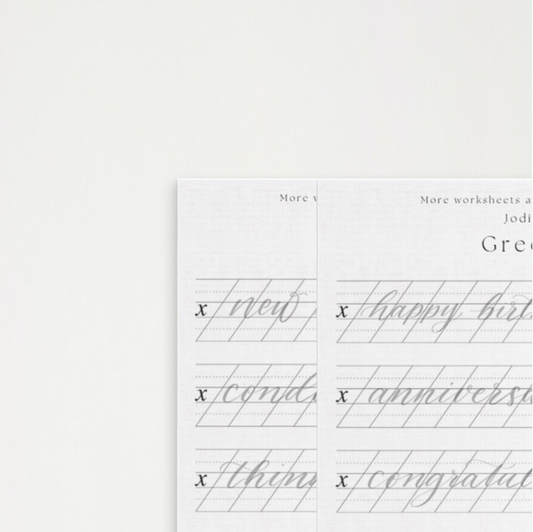 More
x new
x cond
x think
More worksheets a
Jodi
Gree
x happy birt
x anniversa
x congratul